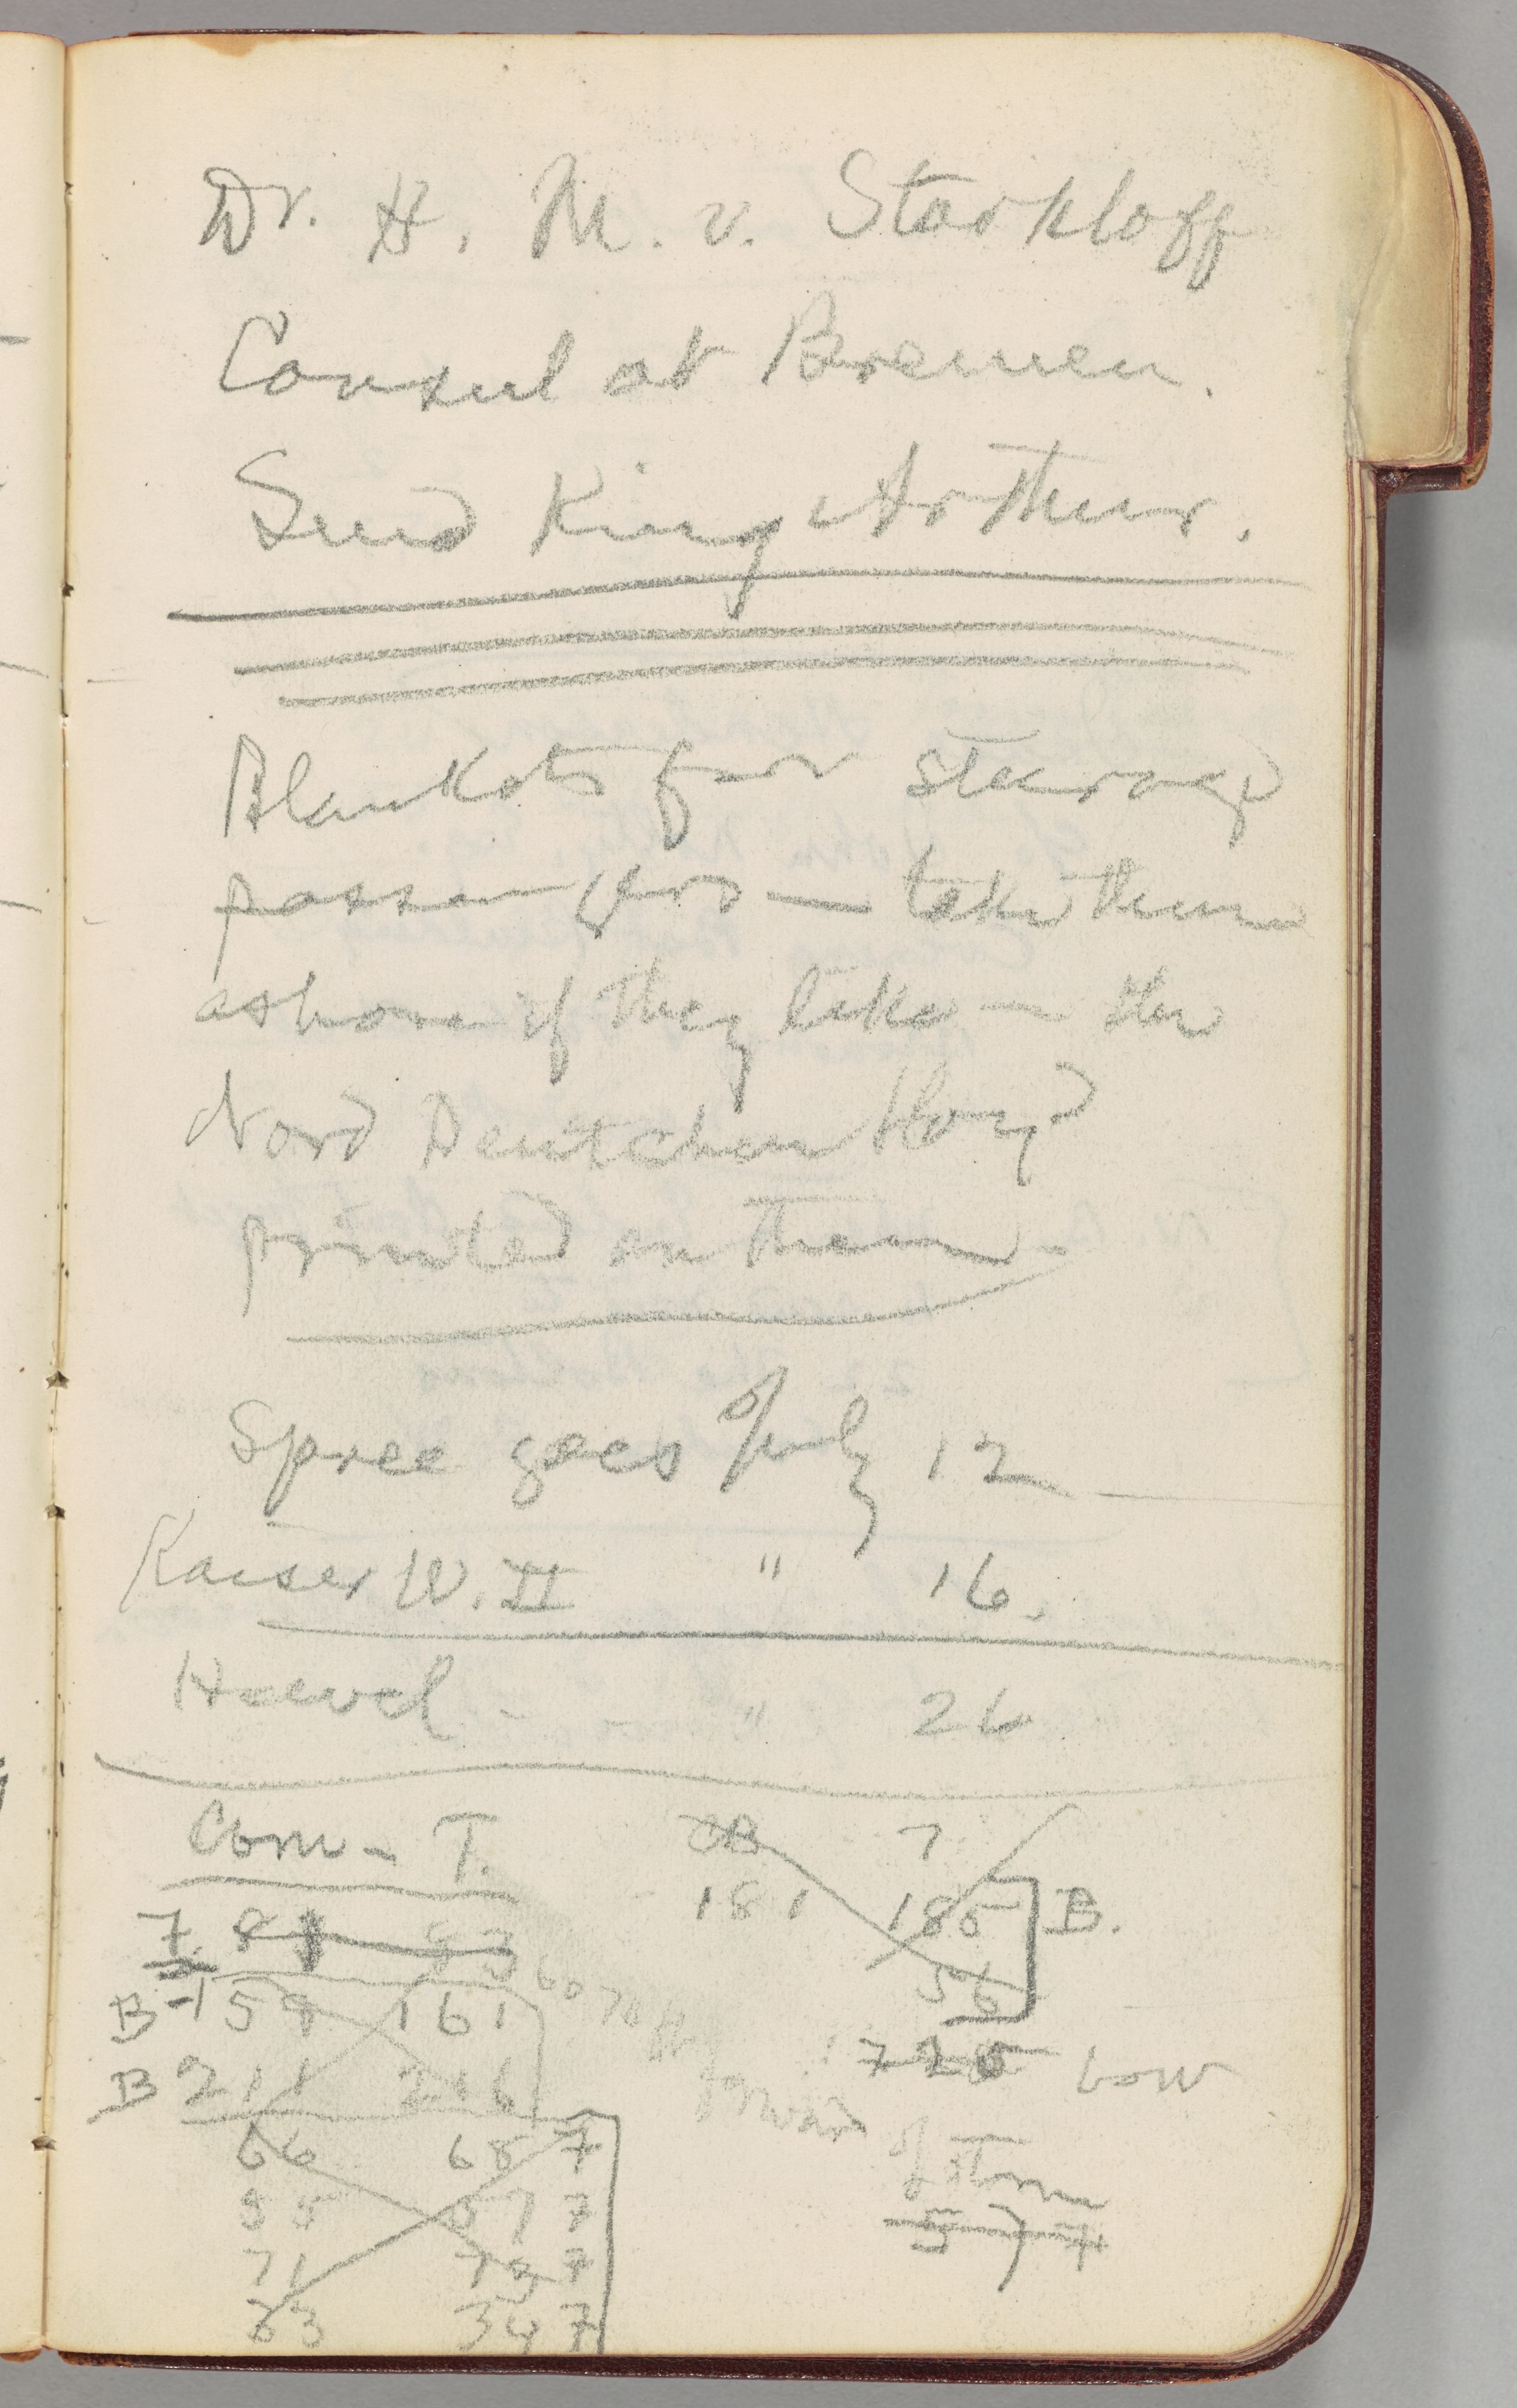 Dr. H. M. v. Starkloff
Consul at Bremen.
Send King Arthur.
Blankets for steerage
passengers — take them
ashore if they like — the
Nord Deutchen Lloyd
printed on them.
Spree goes July 12
Kaiser W. II " 16.
Havel - - " 26
Com - T.
7 8 53
B - 159 161
B 211 216
66 68 7
55 57 7
71 73 7
33 34 7
60 70
forward
CB 7
181 185 B.
56
725 bow
of Stm
577